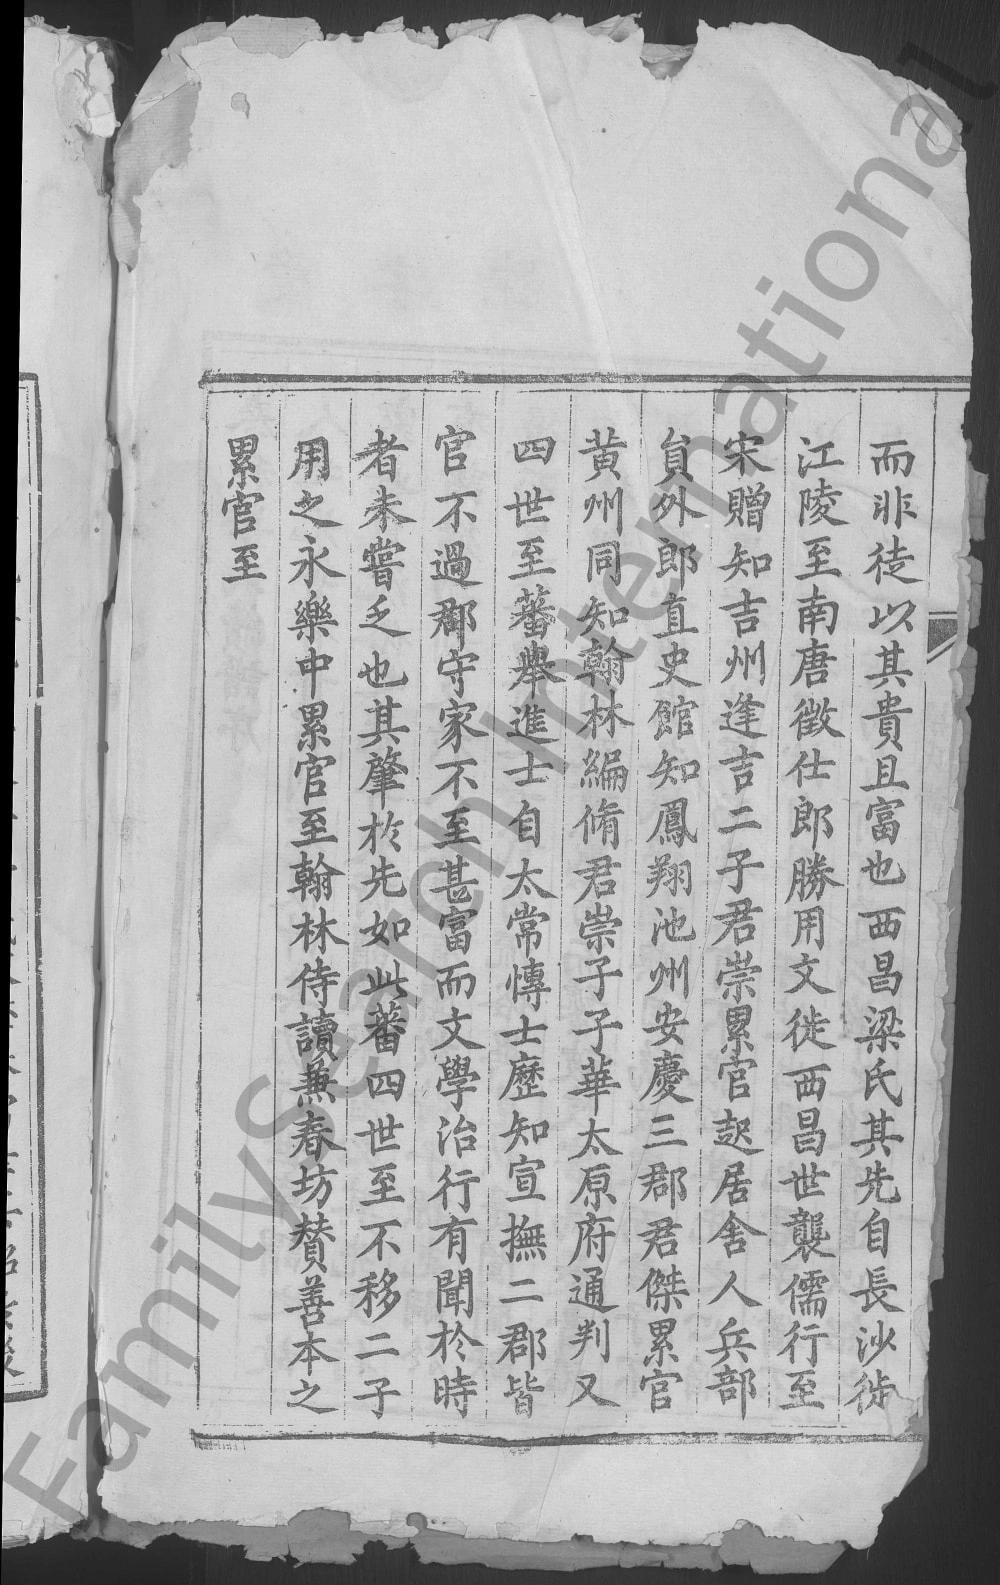 而非徒以其貴且富也西昌梁氏其先自長沙徙
江陵至南唐徵仕郎勝用文徙西昌世襲儒行至
宋贈知吉州逢吉二子君崇累官起居舍人兵部
員外郎直史館知鳳翔池州安慶三郡君傑累官
黃州同知翰林編脩君崇子子華太原府通判又
四世至蕃舉進士自太常博士歷知宣撫二郡皆
官不過郡守家不至甚富而文學治行有聞於時
者未嘗乏也其肇於先如此蕃四世至不移二子
用之永樂中累官至翰林侍讀兼春坊贊善本之
累官至
FamilySearch International